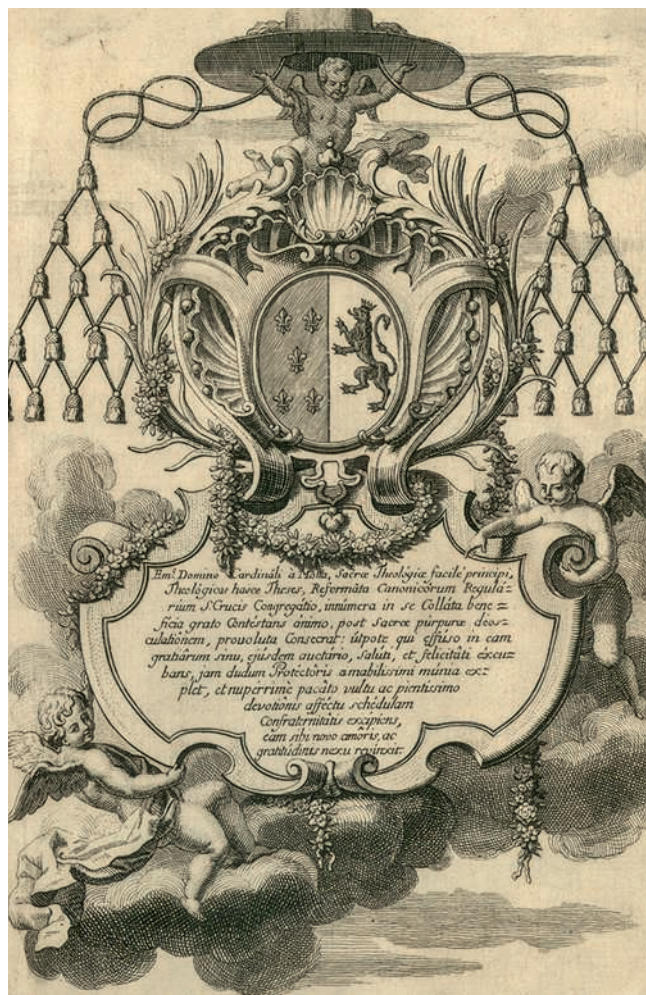 Em.º Domino Cardináli à Motta, Sacræ Theológiæ facilè príncipi,
Theológicas hasce Theses, Reformáta Canonicórum Regulá-
rium S. Crucis Congregatio, innúmera in se Colláta bene =
fícia grato Contéstans ánimo, post Sacræ púrpuræ deos-
culatiónem, provoluta Consecrat: útpote qui effúso in eam
gratiárum sinu, ejúsdem auctário, salúti, et felicitáti excu-
bans, jam dudum Protectóris amabilíssimi múnia ex-
plet, et nuperrimè pacáto vultu ac pientíssimo
devotiónis afféctu schédulam
Confraternitátis excípiens,
eam sibi novo amóris, ac
gratitúdinis nexu revinxit.